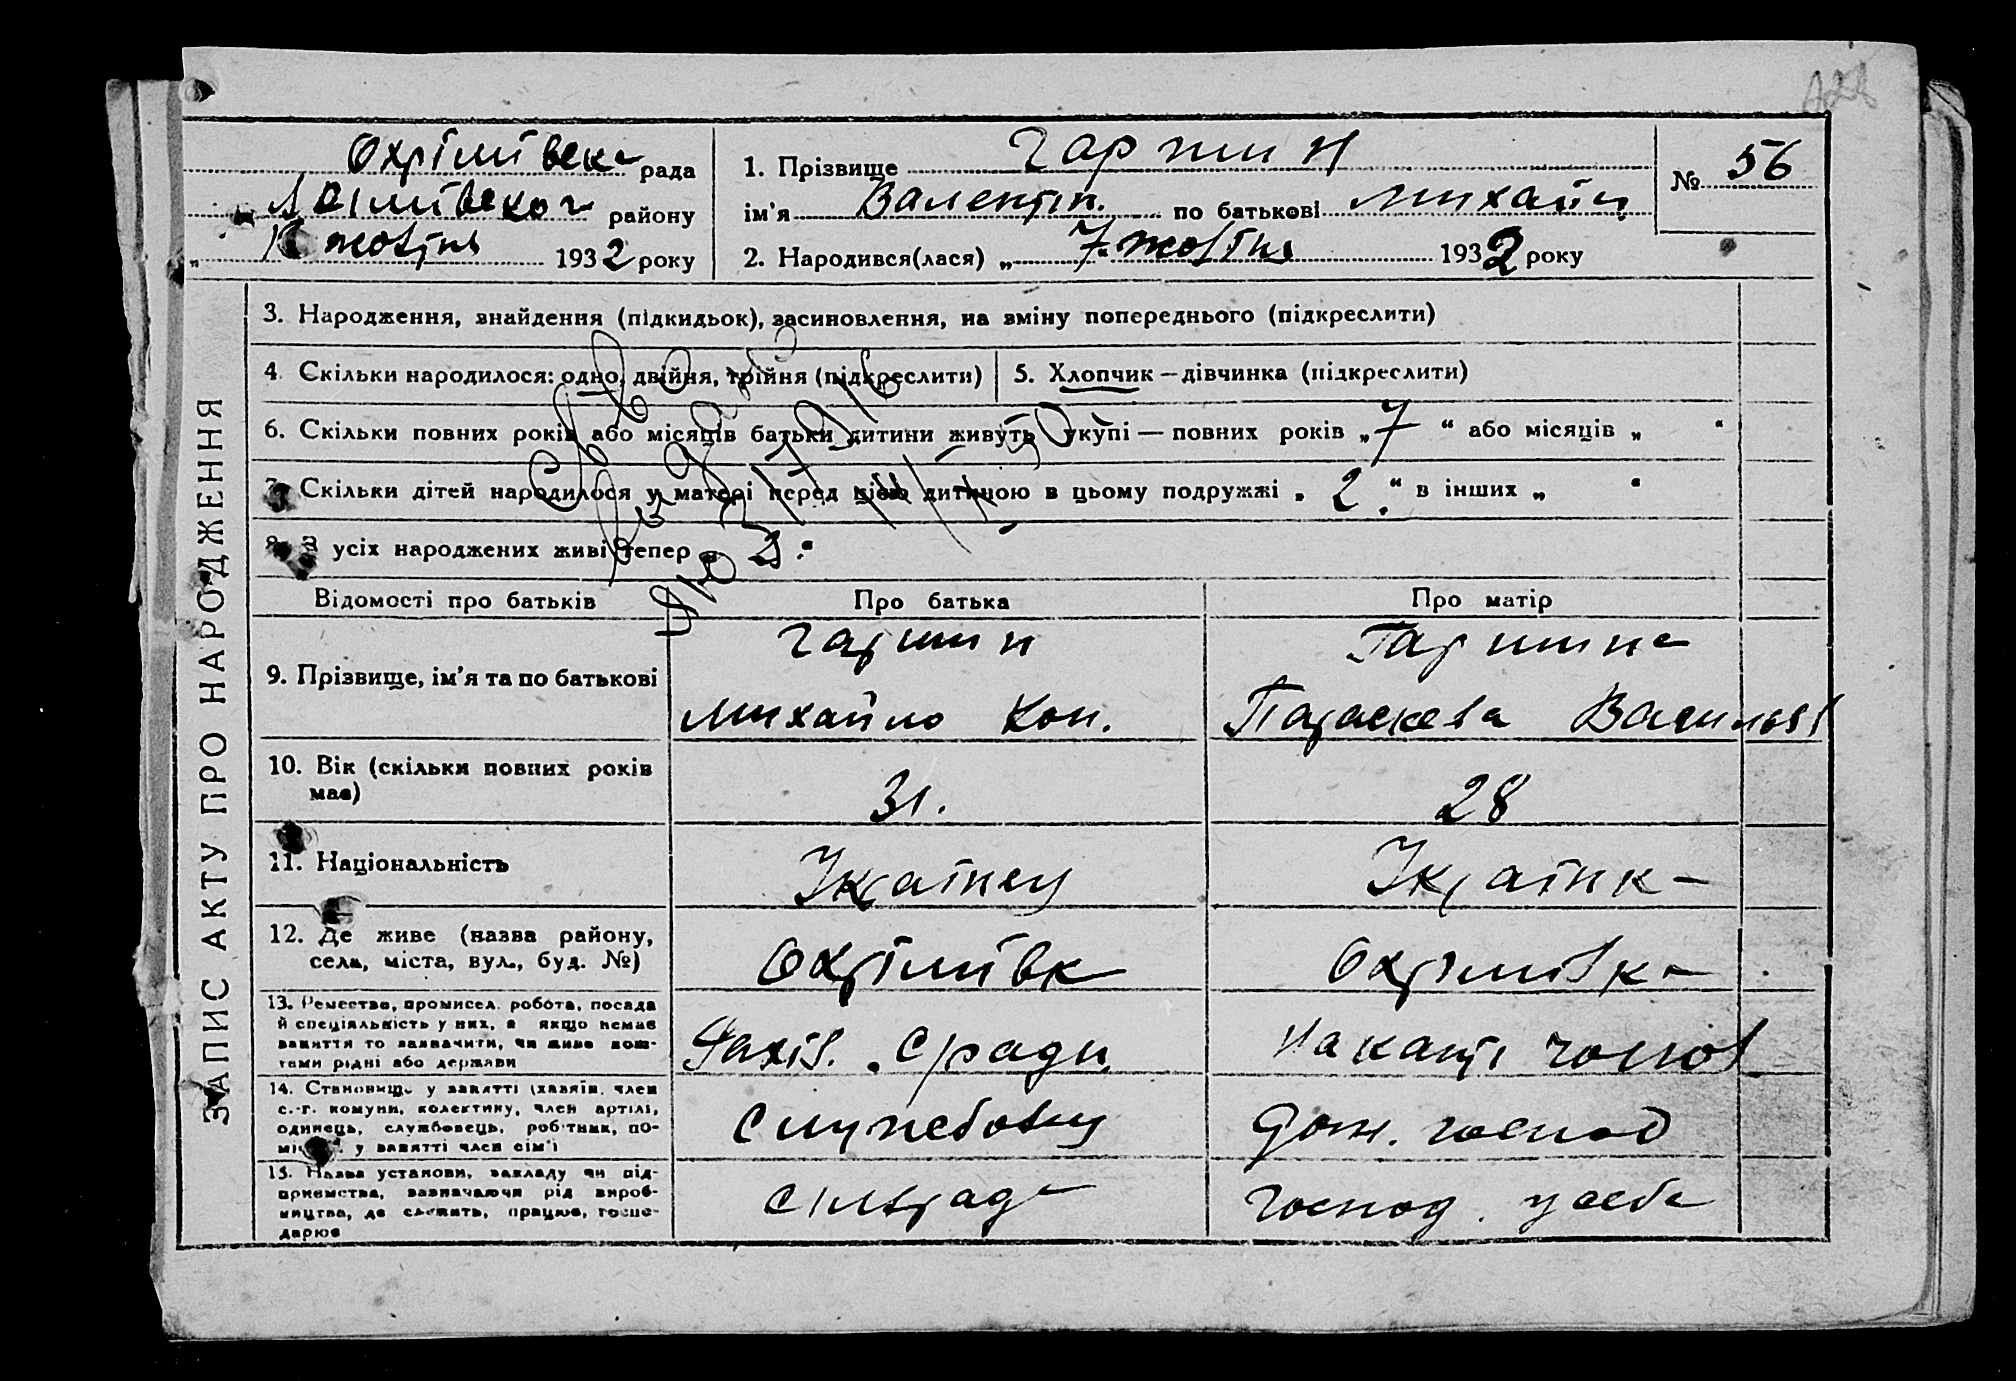 Охрімівськ рада
району
жовтня 1932 року
1. Прізвище Гаршин
ім'я Валентін. по батькові Михайл
2. Народився(лася) „7" жовтня 1932 року
№ 56
ЗАПИС АКТУ ПРО НАРОДЖЕННЯ
3. Народження, знайдення (підкидьок), засиновлення, на зміну попереднього (підкреслити)
4. Скільки народилося: одно, двійня, трійня (підкреслити)
5. Хлопчик — дівчинка (підкреслити)
6. Скільки повних років або місяців батьки дитини живуть укупі — повних років „7" або місяців „ "
7. Скільки дітей народилося у матері перед цією дитиною в цьому подружжі „2" в інших „ "
8. В усіх народжених живі тепер „3"
Відомості про батьків
Про батька
Про матір
9. Прізвище, ім'я та по батькові
Гаршин
Михайло Кон.
Гаршина
Параскева Васильев
10. Вік (скільки повних років має)
31.
28
11. Національність
Українец
Українка
12. Де живе (назва району, села, міста, вул., буд. №)
Охрімівк
Охрімівка
13. Ремество, промисел, робота, посада й спеціяльність у них, а якщо немає заняття то зазначити, чи живе коштами рідні або держави
14. Становище у занятті (хазяїн, член с.-г. комуни, колективу, член артілі, одинець, службовець, робітник, у занятті член сім'ї
Службовец
Дом. господ
15. Назва установи, закладу чи підприємства, зазначаючи рід виробництва, де служить, працює, господарює
Сільрада
Господ. у себе